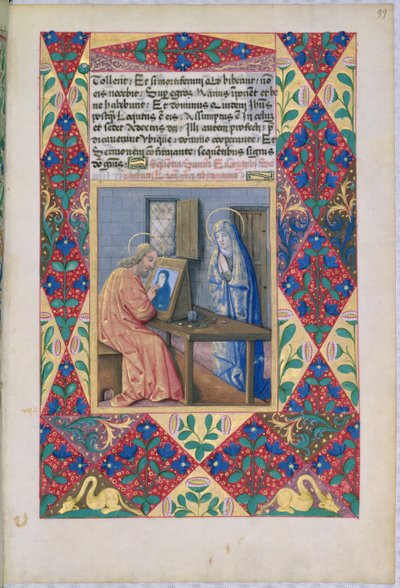 99
Tollent: Et si mortiferum quid biberint: nō
eis nocebit: Sup egros Manus īponēt et be
ne habebunt: Et dominus Quidem Ihūs
postq̄ Loqutus ē eis: Assumptus ē In celū:
et sedet A dextris dei: Illi autem profecti: p̄
dicauerunt Ubique: domino cooperante: Et
Sermonem cōfirmante: sequentibus signis
Sequentia Sancti